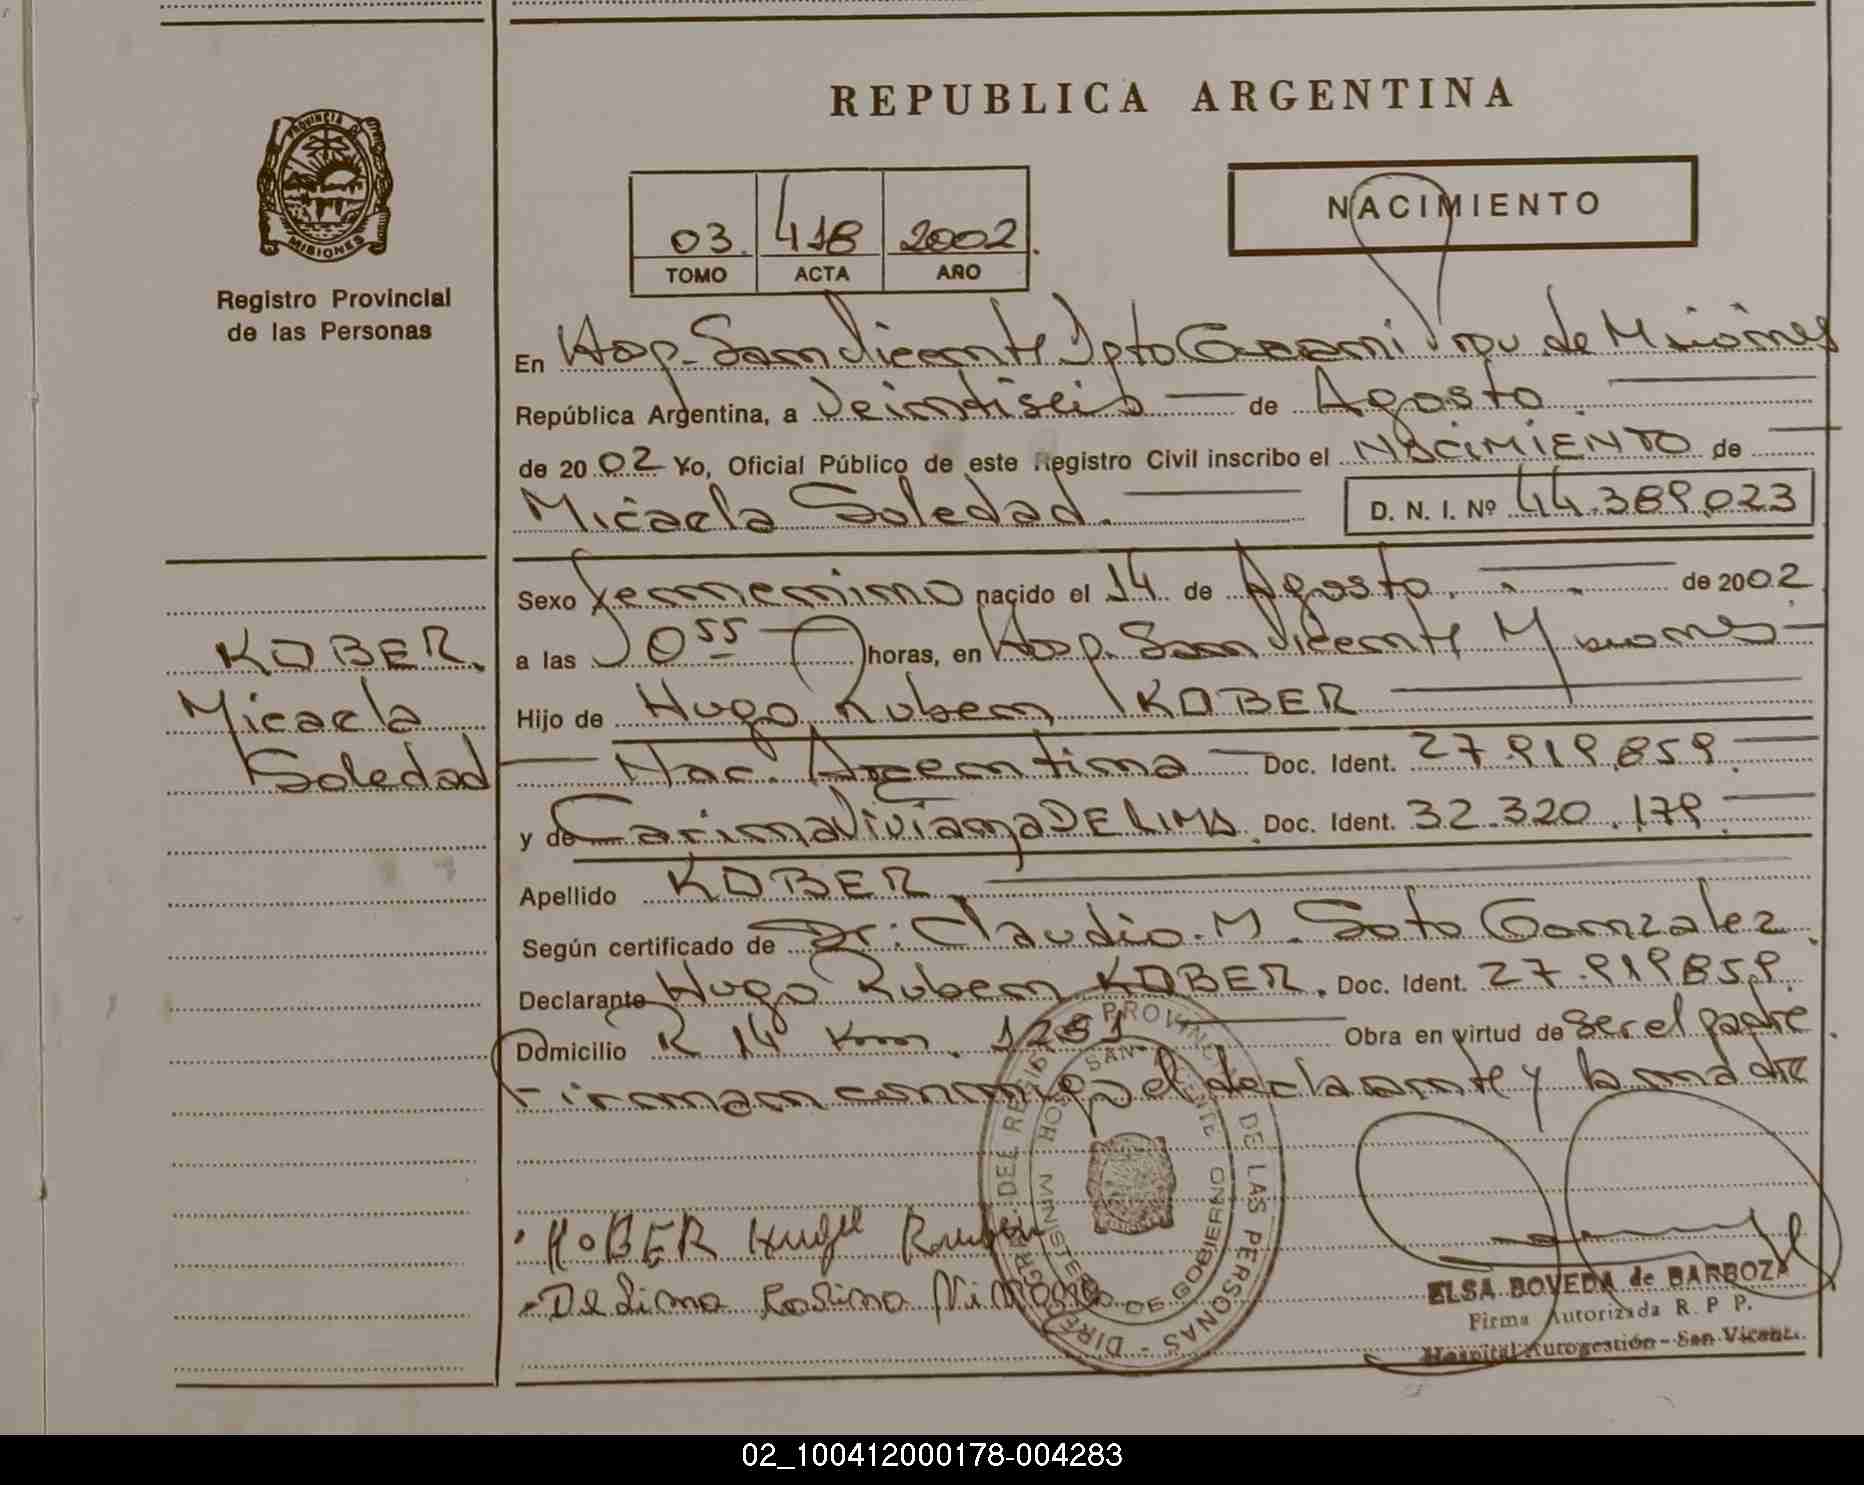 REPUBLICA ARGENTINA
PROVINCIA DE
MISIONES
Registro Provincial
de las Personas
NACIMIENTO
03. 418 2002.
TOMO ACTA AÑO
En Hosp. San Vicente Dpto Guarani Prov. de Misiones
República Argentina, a Veintiseis de Agosto.
de 2002 Yo, Oficial Público de este Registro Civil inscribo el NACIMIENTO de
Micaela Soledad. D. N. I. Nº 44.389.023
Sexo femenino nacido el 14 de Agosto. de 2002
a las 0 55 horas, en Hosp. San Vicente Misiones
Hijo de Hugo Ruben KOBER
Nac. Argentina Doc. Ident. 27.919.859.
y de Carina Viviana DE LIMA. Doc. Ident. 32.320.179.
Apellido KOBER
Según certificado de Dr. Claudio. M. Soto Gonzalez.
Declarante Hugo Ruben KOBER. Doc. Ident. 27.919859.
Domicilio R 14 Km. 1251 Obra en virtud de ser el padre.
Firman conmigo el declarante y la madre
KOBER.
Micaela
Soledad
KOBER Hugo Ruben
De Lima
DIREC DEL REGISTRO PROVINCIAL DE LAS PERSONAS
HOSP SAN VICENTE
MINISTERIO DE GOBIERNO
ELSA BOVEDA de BARBOZA
Firma Autorizada R. P P.
Hospital Autogestión - San Vicente.
02_100412000178-004283